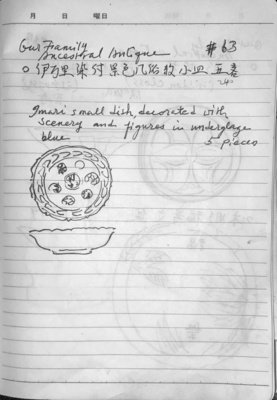 月 日 曜日
Our Family
Ancestral Antique # 63
○ 伊万里染付景色人 小皿 五客
Imari small dish, decorated with
scenery and figures in underglaze
blue
5 pieces